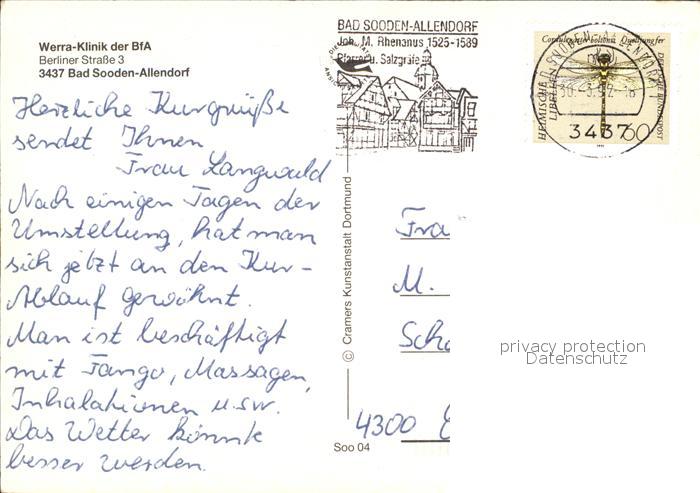 Werra-Klinik der BfA
Berliner Straße 3
3437 Bad Sooden-Allendorf
Herzliche Kurgrüße
sendet Ihnen
Frau Langwald
Nach einigen Tagen der
Umstellung, hat man
sich jetzt an den Kur-
Ablauf gewöhnt.
Man ist beschäftigt
mit Fango, Massagen,
Inhalationen u.s.w.
Das Wetter könnte
besser werden.
BAD SOODEN-ALLENDORF
Joh. M. Rhenanus 1525-1589
Pfarrer u. Salzgräfe
© Cramers Kunstanstalt Dortmund
Soo 04
HEIMISCHE LIBELLEN
DEUTSCHE BUNDESPOST
60
3437
Fra
M.
Scho
4300
privacy protection
Datenschutz